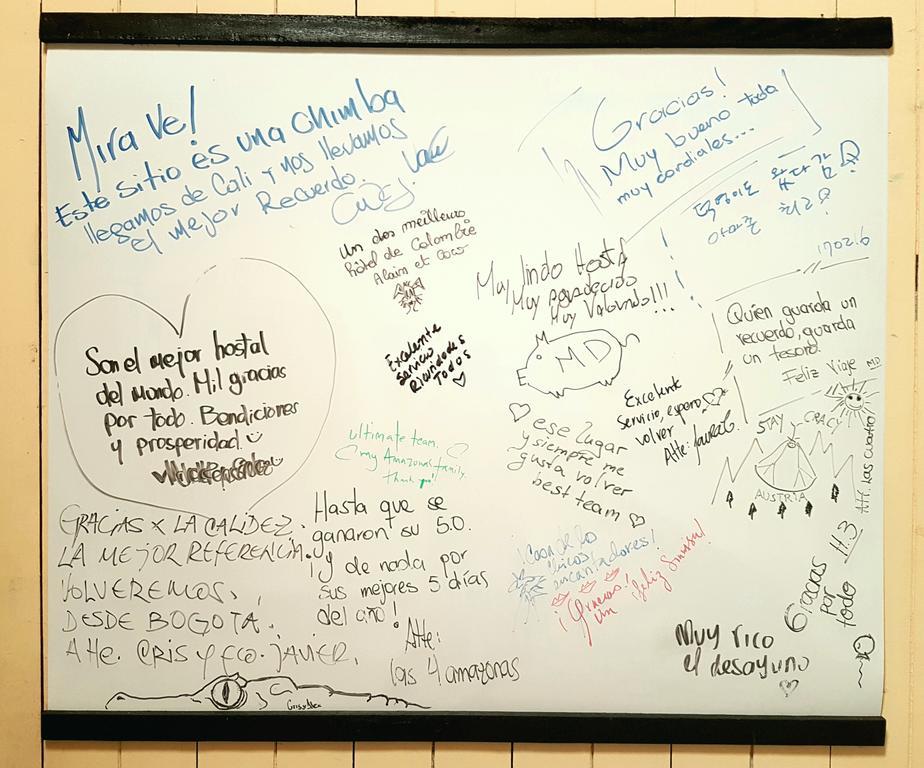 Mira Ve!
Este sitio es una chimba
llegamos de Cali y nos llevamos
el mejor Recuerdo.
Gracias!
Muy bueno todo
muy cordiales...
아마존 최고!
170216
Un des meilleurs
hôtel de Colombie
Alain et Coco
Muy lindo Hostal
Muy agradecido
Muy Valorado!!!
MD
Quien guarda un
recuerdo, guarda
un tesoro.
Feliz Viaje MD
Son el mejor hostal
del mundo. Mil gracias
por todo. Bendiciones
y prosperidad.
Excelente
servicio
Recomendados
Todos
Excelente
servicio, espero
volver
Atte: Laura G.
ultimate team.
my Amazonas family.
thank you!
ese lugar
y siempre me
gusta volver
best team
STAY CRAZY
AUSTRIA
GRACIAS X LA CALIDEZ.
LA MEJOR REFERENCIA.
VOLVEREMOS.
DESDE BOGOTA.
Atte. CRIS Y FCO. JAVIER.
Hasta que se
ganaron su 5.0.
¡y de nada por
sus mejores 5 días
del año!
Atte:
las 4 amazonas
¡Gracias!
un ¡feliz
Gracias
por
todo
H.3
Att. Las cuatro
Muy rico
el desayuno